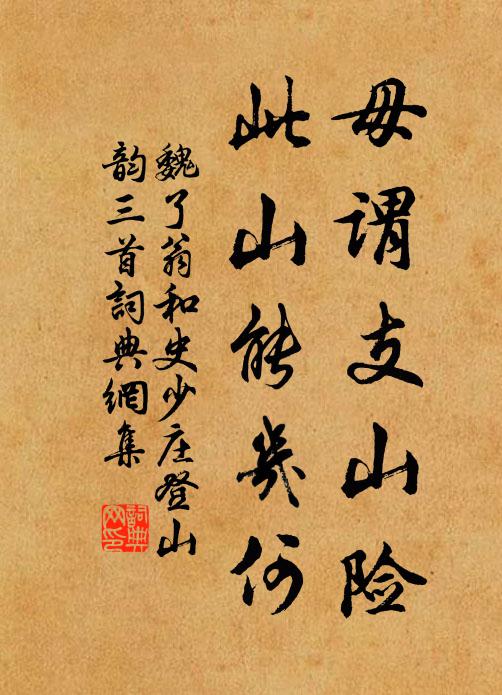 毋谓支山险
此山能几何
魏了翁和史少庄登山
韵三首詞典網集
詞典网印